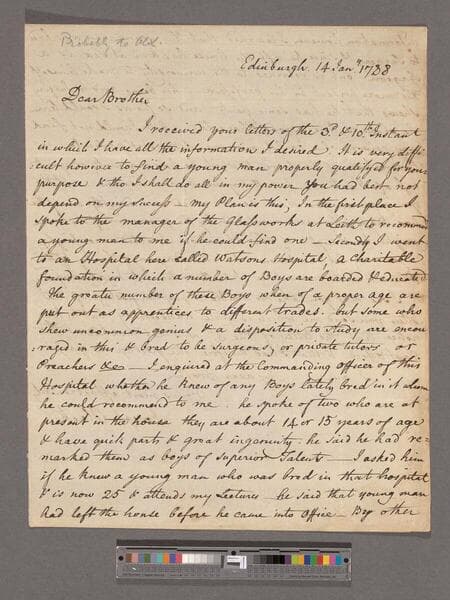 Probably to Alex.
Edinburgh 14 Jany 1788
Dear Brother
I received your letters of the 3d & 10th Instant
in which I have all the information I desired. It is very diffi
:cult however to find a young man properly qualified for your
purpose & tho I shall do all in my power You had best not
depend on my Sucess - my Plan is this, In the first place I
spoke to the manager of the Glassworks at Leith to recommend
a young man to me if he could find one - Secondly I went
to an Hospital here called Watsons Hospital, a Charitable
foundation in which a number of Boys are boarded & educated
The greater number of these Boys when of a proper age are
put out as apprentices to diferent trades. but some who
shew uncommon genius & a disposition to study are encou
:raged in this & bred to be surgeons, or private tutors or
Preachers &c - I enquired at the Commanding officer of this
Hospital whether he knew of any Boys lately bred in it whom
he could recommend to me. he spoke of two who are at
present in the house they are about 14 or 15 years of age
& have quick parts & great ingenuity. he said he had re=
marked them as boys of superior Talents - I asked him
if he knew a young man who was bred in that hospital
& is now 25 & attends my Lectures - he said that young man
had left the house before he came into office - By other